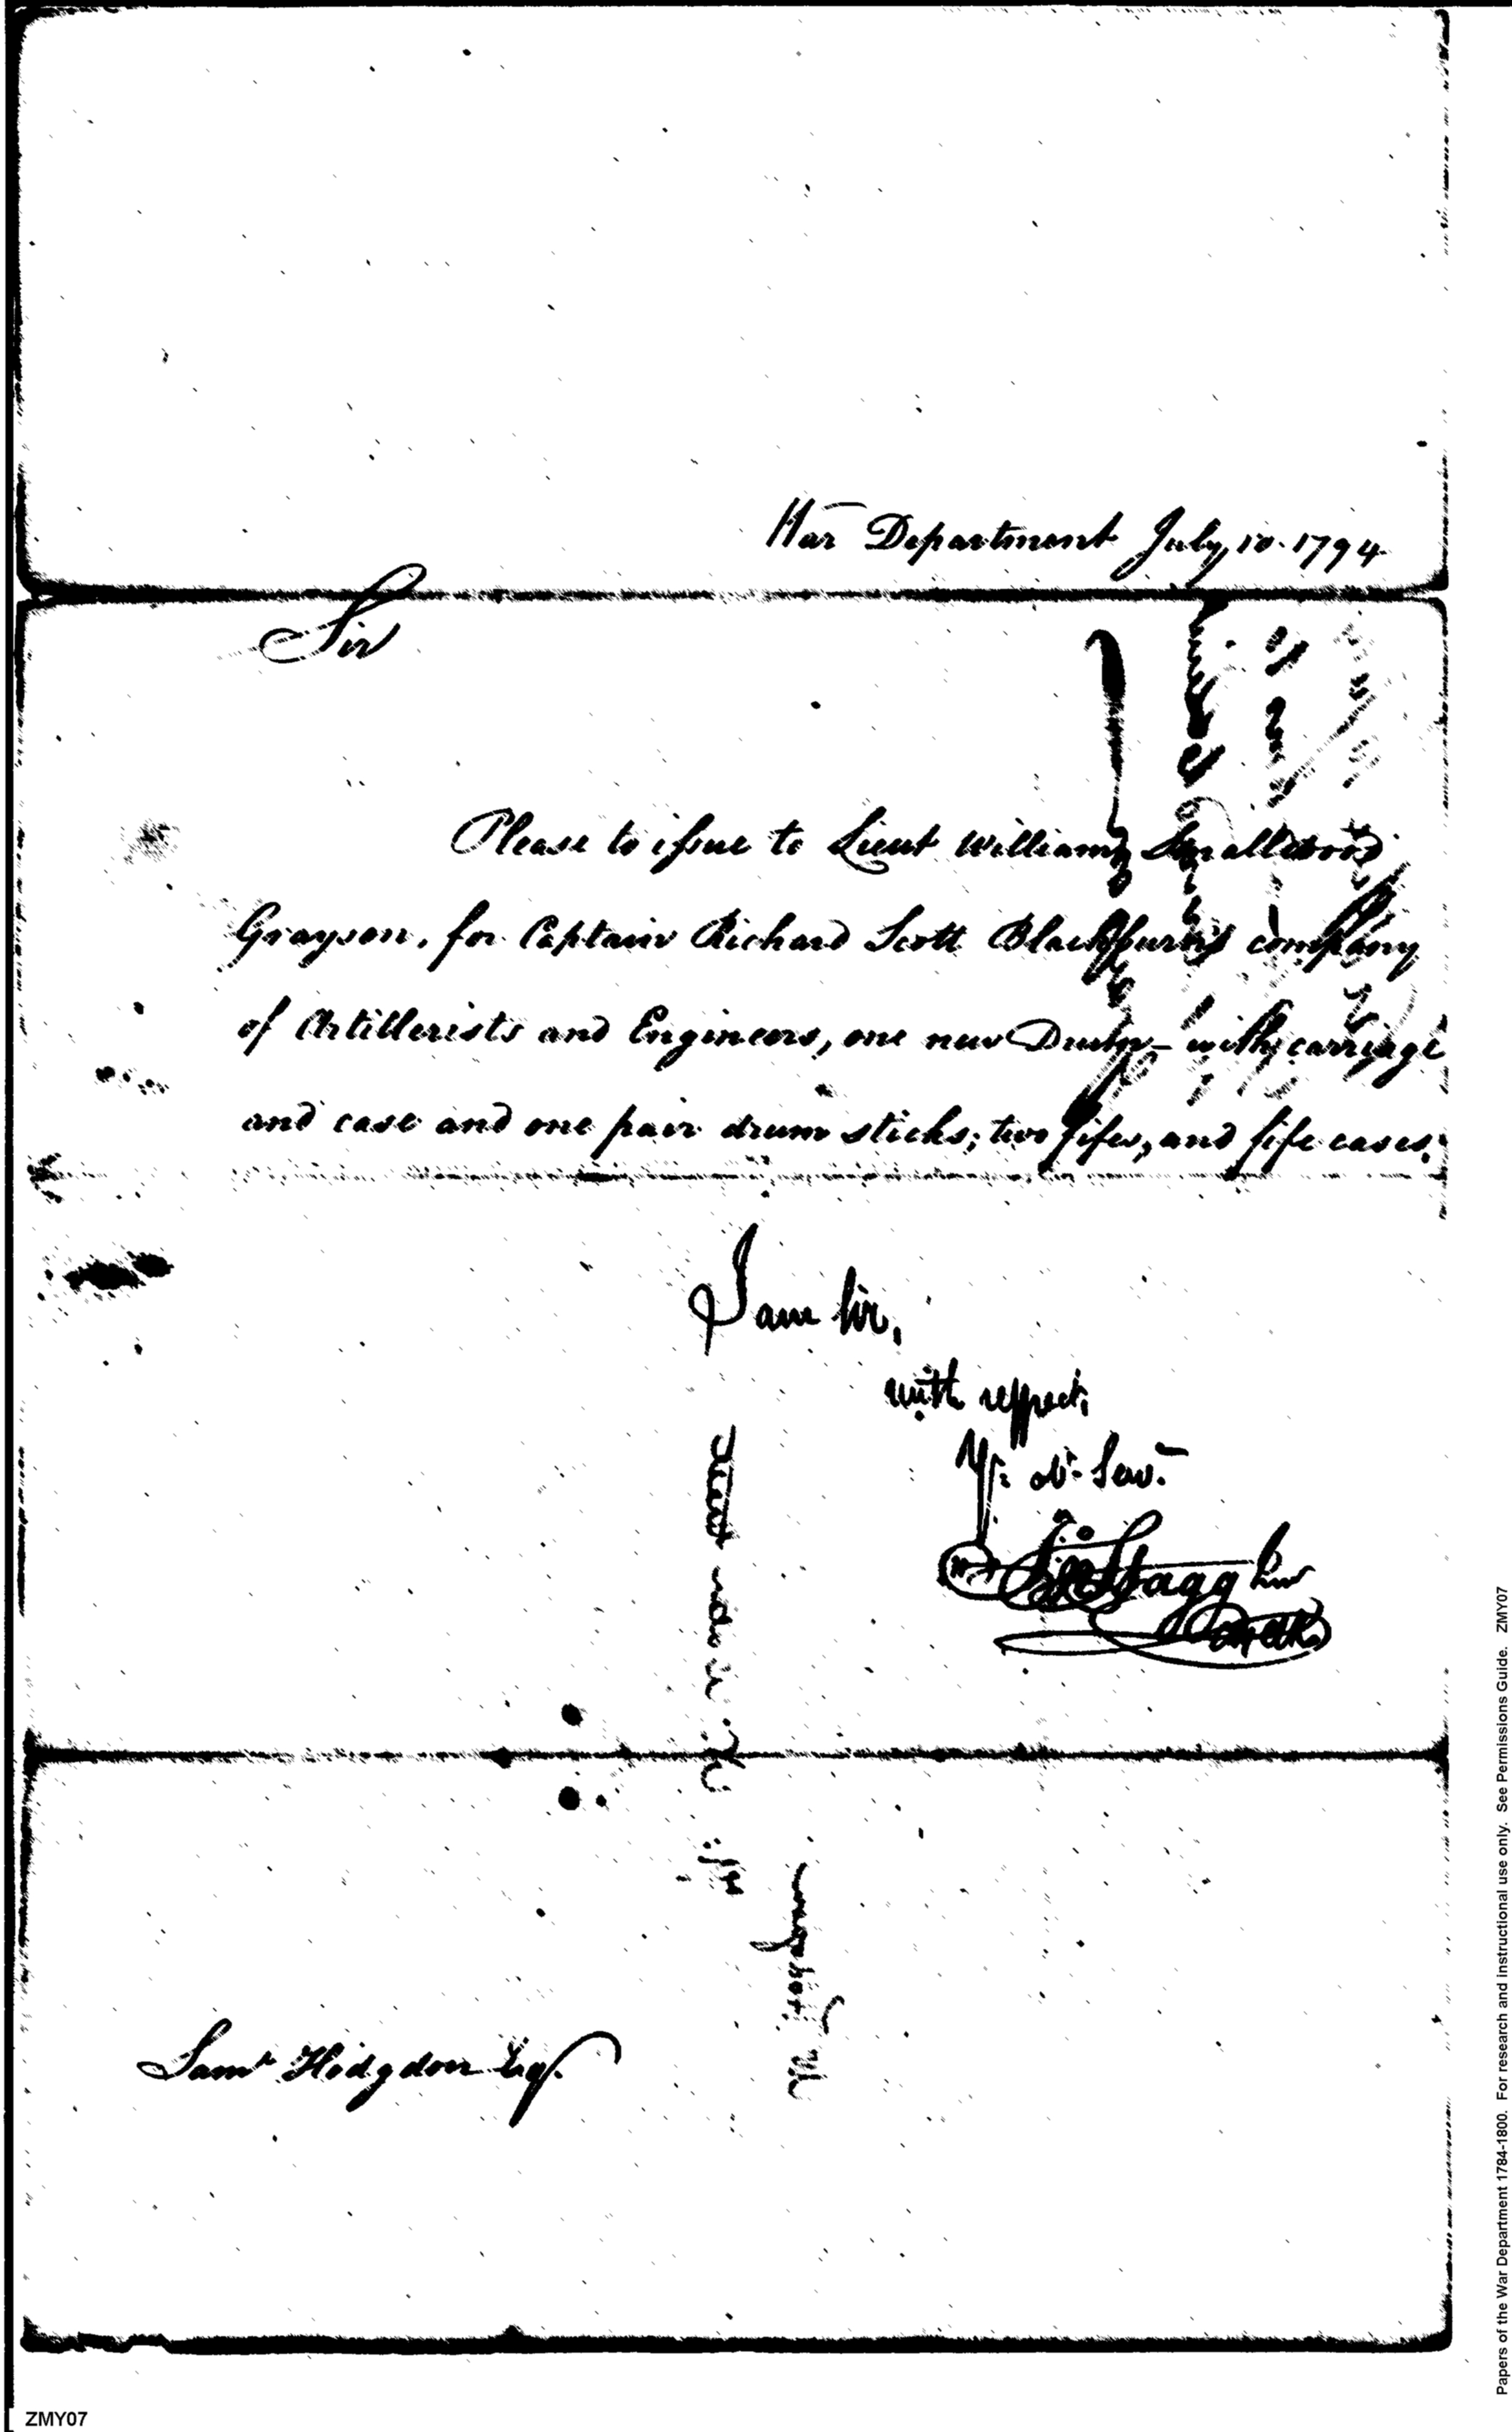 War Department July 10. 1794
Sir
Please to issue to Lieut William Smallwood
Grayson, for Captain Richard Scott Blackburn's company
of Artillerists and Engineers, one new Drum – with carriage
and case and one pair drum sticks; two fifes, and fife cases.
I am Sir,
with respect,
Yr. obt. Servt.
Jno Stagg Junr
Saml Hodgdon Esqr.
Papers of the War Department 1784-1800. For research and instructional use only. See Permissions Guide. ZMY07
ZMY07